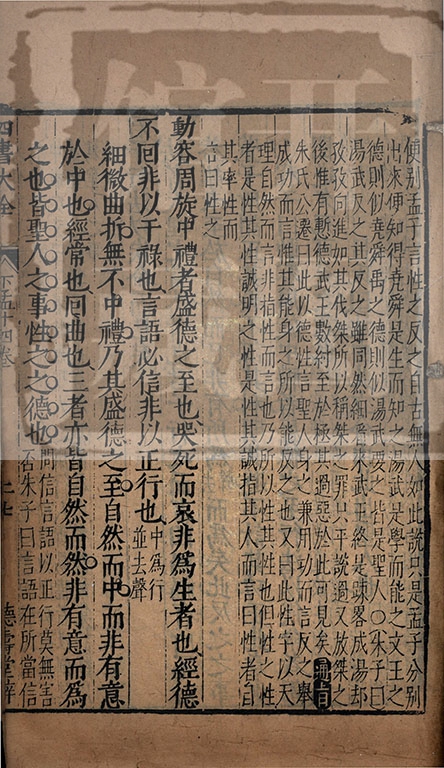 便别孟子言性之反之自古無人如此說只是孟子分别
出來便知得堯舜是生而知之湯武是學而能之文王之
德則似堯舜禹之德則似湯武要之皆是聖人○朱子曰
湯武反之其反之雖同然細看來武王終是疎畧成湯却
孜孜向進如其伐桀所以稱桀之罪只平說過又放桀之
後惟有慙德武王數紂至於極其過惡於此可見矣 通旨
朱氏公遷曰此以德性言聖人身之兼用功而言反之舉
成功而言性其能身之所以能反之也又曰此性字以天
理自然而言非指性而言也乃所以性其性也但性之性
者是性其性誠明之性是性其誠指其人而言曰性者自
其率性而
言曰性之
動容周旋中禮者盛德之至也哭死而哀非爲生者也經德
不回非以干祿也言語必信非以正行也中爲行
並去聲
細微曲折無不中禮乃其盛德之至自然而中而非有意
於中也經常也回曲也三者亦皆自然而然非有意而爲
之也皆聖人之事性之之德也問信言語以正行莫無害
否朱子曰言語在所當信
四書大全
下孟十四卷
二七
德壽堂梓